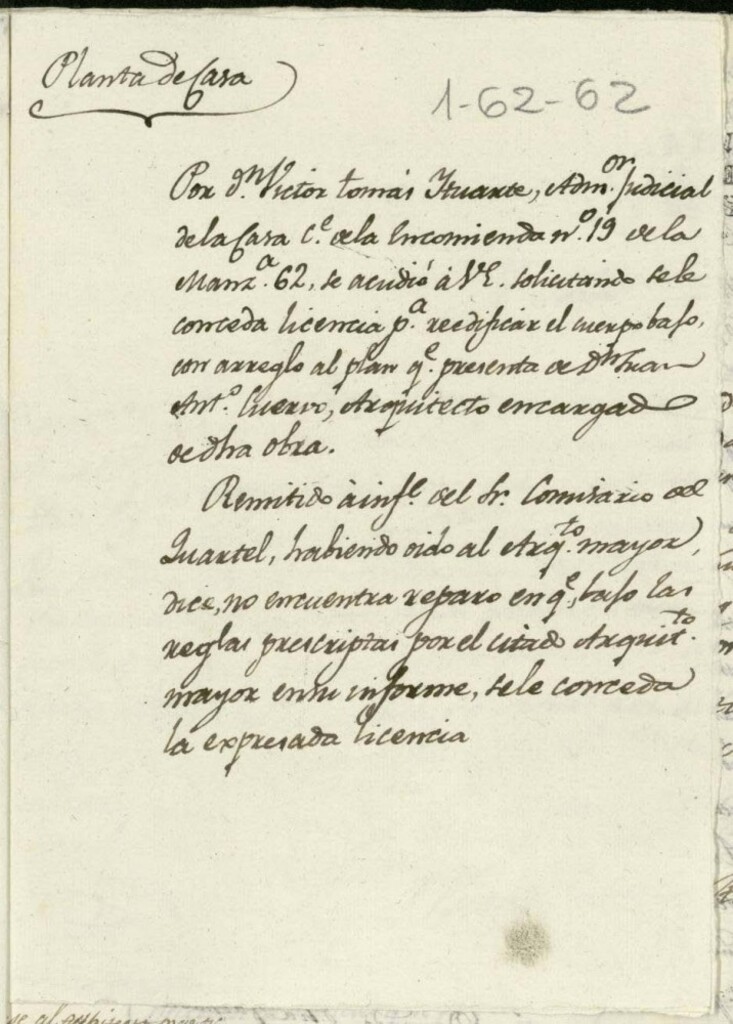 Planta de Casa
1-62-62
Por dⁿ. Victor tomás Ytuarte, Adm.ᵒʳ Judicial
de la Casa C.ᵉ de la Encomienda n.º 19 de la
Manz.ᵃ 62, se acudió à VE. solicitando se le
conceda licencia p.ᵃ reedificar el cuerpo bajo,
con arreglo al plan q.ᵉ presenta de dⁿ Juan
Ant.º Cuervo, Arquitecto encargado
de dha obra.
Remitido à infᵉ. del Sr. Comisario del
Quartel, habiendo oido al Arq.ᵗᵒ mayor,
dice, no encuentra reparo en q.ᵉ, bajo las
reglas prescriptas por el citado Arquit.ᵗᵒ
mayor en su informe, se le conceda
la expresada licencia